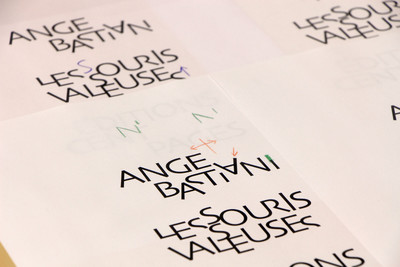 ANGE
BASTIANI
LES SOURIS
VALSEUSES
LES SOURIS
VALSEUSES
N'
N'
ANGE
BASTIANI
LES SOURIS
VALSEUSES